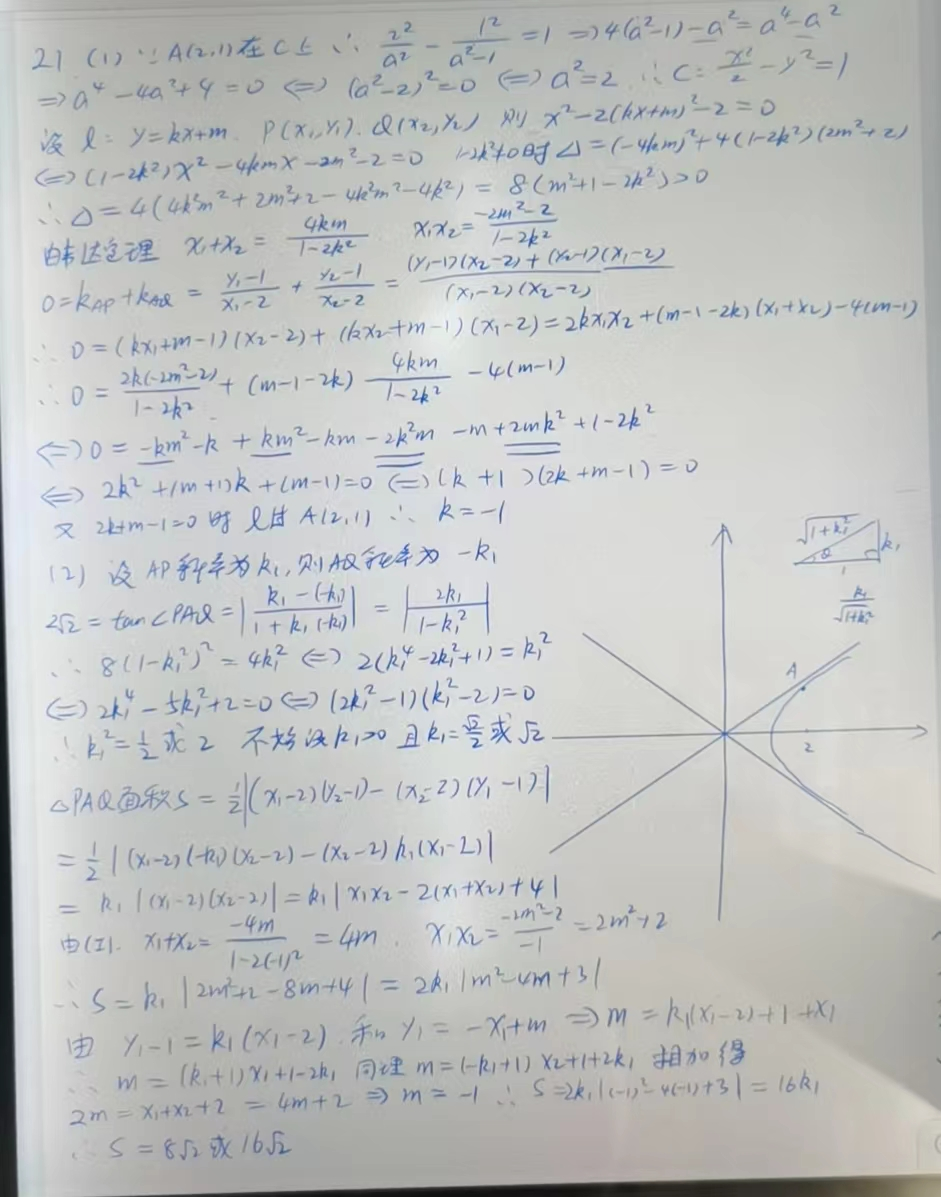 21 (1) ∵ A(2,1)在C上 ∴ 2²/a² - 1²/(a²-1) = 1 ⇒ 4(a²-1)-a² = a⁴-a²
⇒ a⁴-4a²+4=0 ⇔ (a²-2)²=0 ⇔ a²=2 ∴ C: x²/2 - y²=1
设 l: y=kx+m. P(x₁,y₁). Q(x₂,y₂) 则 x²-2(kx+m)²-2=0
⇔ (1-2k²)x²-4kmx-2m²-2=0 1-2k²≠0时 Δ=(-4km)²+4(1-2k²)(2m²+2)
∴ Δ=4(4k²m²+2m²+2-4k²m²-4k²) = 8(m²+1-2k²)>0
由韦达定理 x₁+x₂ = 4km/(1-2k²) x₁x₂ = (-2m²-2)/(1-2k²)
0=k_AP+k_AQ = (y₁-1)/(x₁-2) + (y₂-1)/(x₂-2) = ((y₁-1)(x₂-2)+(y₂-1)(x₁-2))/((x₁-2)(x₂-2))
∴ 0=(kx₁+m-1)(x₂-2)+(kx₂+m-1)(x₁-2)=2kx₁x₂+(m-1-2k)(x₁+x₂)-4(m-1)
∴ 0 = 2k(-2m²-2)/(1-2k²) + (m-1-2k) 4km/(1-2k²) - 4(m-1)
⇔ 0 = -km²-k+km²-km-2k²m-m+2mk²+1-2k²
⇔ 2k²+(m+1)k+(m-1)=0 ⇔ (k+1)(2k+m-1)=0
又 2k+m-1=0 时 l过A(2,1) ∴ k=-1
(2) 设AP斜率为k₁,则AQ斜率为-k₁
2√2 = tan∠PAQ = |(k₁-(-k₁))/(1+k₁(-k₁))| = |2k₁/(1-k₁²)|
∴ 8(1-k₁²)² = 4k₁² ⇔ 2(k₁⁴-2k₁²+1)=k₁²
⇔ 2k₁⁴-5k₁²+2=0 ⇔ (2k₁²-1)(k₁²-2)=0
∴ k₁²=1/2 或 2 不妨设k₁>0 且k₁=√2/2 或 √2
△PAQ面积S = 1/2|(x₁-2)(y₂-1)-(x₂-2)(y₁-1)|
= 1/2|(x₁-2)(-k₁)(x₂-2)-(x₂-2)k₁(x₁-2)|
= k₁|(x₁-2)(x₂-2)| = k₁|x₁x₂-2(x₁+x₂)+4|
由(I). x₁+x₂ = -4m/(1-2(-1)²) = 4m. x₁x₂ = (-2m²-2)/(-1) = 2m²+2
∴ S=k₁|2m²+2-8m+4| = 2k₁|m²-4m+3|
由 y₁-1=k₁(x₁-2). 和 y₁=-x₁+m ⇒ m=k₁(x₁-2)+1+x₁
∴ m=(k₁+1)x₁+1-2k₁ 同理 m=(-k₁+1)x₂+1+2k₁ 相加得
2m=x₁+x₂+2 = 4m+2 ⇒ m=-1 ∴ S=2k₁|(-1)²-4(-1)+3| = 16k₁
∴ S=8√2 或 16√2
√(1+k₁²)
θ
k₁
1
k₁/√(1+k₁²)
A
2